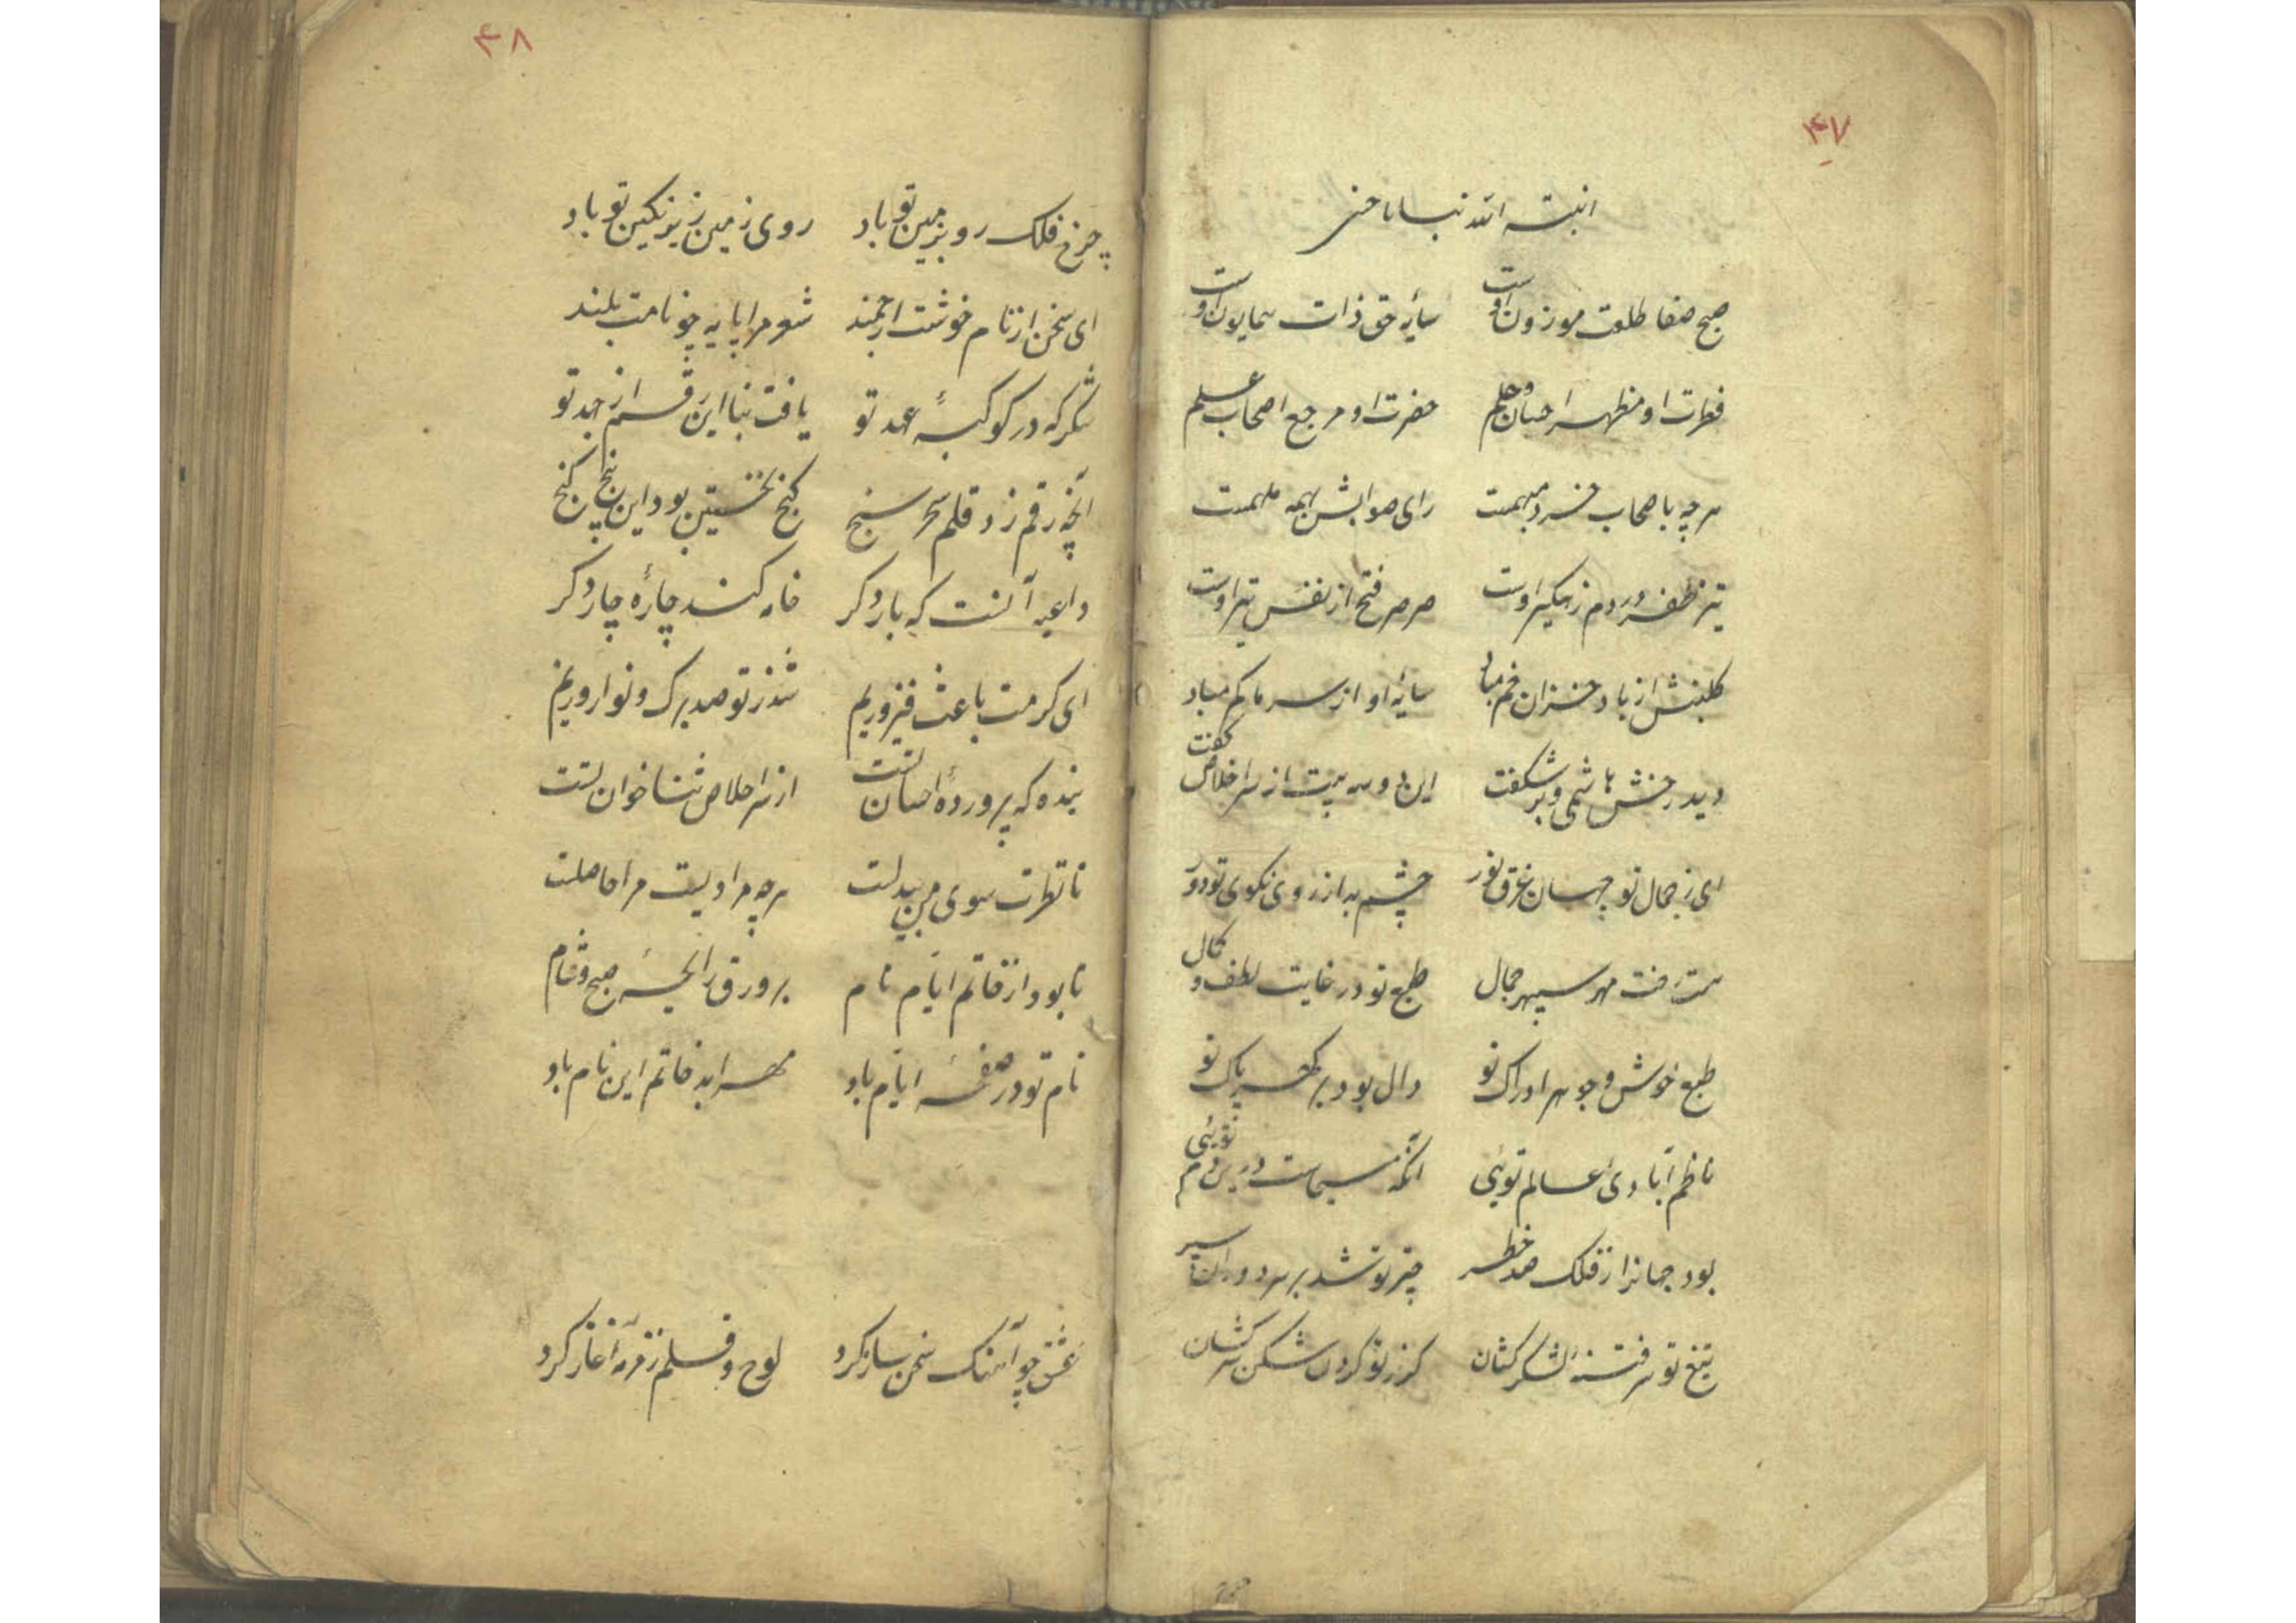 ۴۷
انبته الله نباتا حسنا
صبح صفا طلعت موزون اوست سایهٔ حق ذات همایون اوست
فطرت او مظهر احسان و حلم حضرت او مرجع اصحاب علم
هرچه باصحاب خرد مبهمست رای صوابش بهمه ملهمست
تیر ظفر در دم زهگیر اوست صرصر فتح از نفس تیر اوست
گلبنش از باد خزان خم مباد سایهٔ او از سر ما کم مباد
دید رخش هاشمی و برشکفت این دو سه بیت از سر اخلاص گفت
ای ز جمال تو جهان غرق نور چشم بد از روی نکوی تو دور
هست رخت مهر سپهر جمال طبع تو در غایت لطف و کمال
طبع خوش و جوهر ادراک تو دال بود بر گهر پاک تو
ناظم آبادی عالم توئی آنکه مسیحاست درین دم توئی
بود جهانرا ز فلک صد خطر چتر تو شد بر سر دوران سپر
تیغ تو سرفتنهٔ لشکرکشان گرز تو گردن شکن سرکشان
۴۸
چرخ فلک رو بزمین تو باد روی زمین زیر نگین تو باد
ای سخن از نام خوشت ارجمند شعر مرا پایه چو نامت بلند
شکر که در کوکبهٔ عهد تو یافت بنا این رقم از جهد تو
آنچه رقم زد قلم سحر سنج گنج نخستین بود این پنج گنج
داعیه آنست که بار دگر خامه کند چارهٔ چار دگر
ای کرمت باعث فیروزیم شد ز تو صد برگ و نوا روزیم
بنده که پروردهٔ احسان تست از سر اخلاص ثناخوان تست
تا نظرت سوی من بیدلست هرچه مرادیست مرا حاصلست
تا بود از خاتم ایام نام بر ورق رایحهٔ صبح و شام
نام تو در صفحهٔ ایام باد مهر ابد خاتم این نام باد
عشق چو آهنگ سخن ساز کرد لوح و قلم زمزمه آغاز کرد